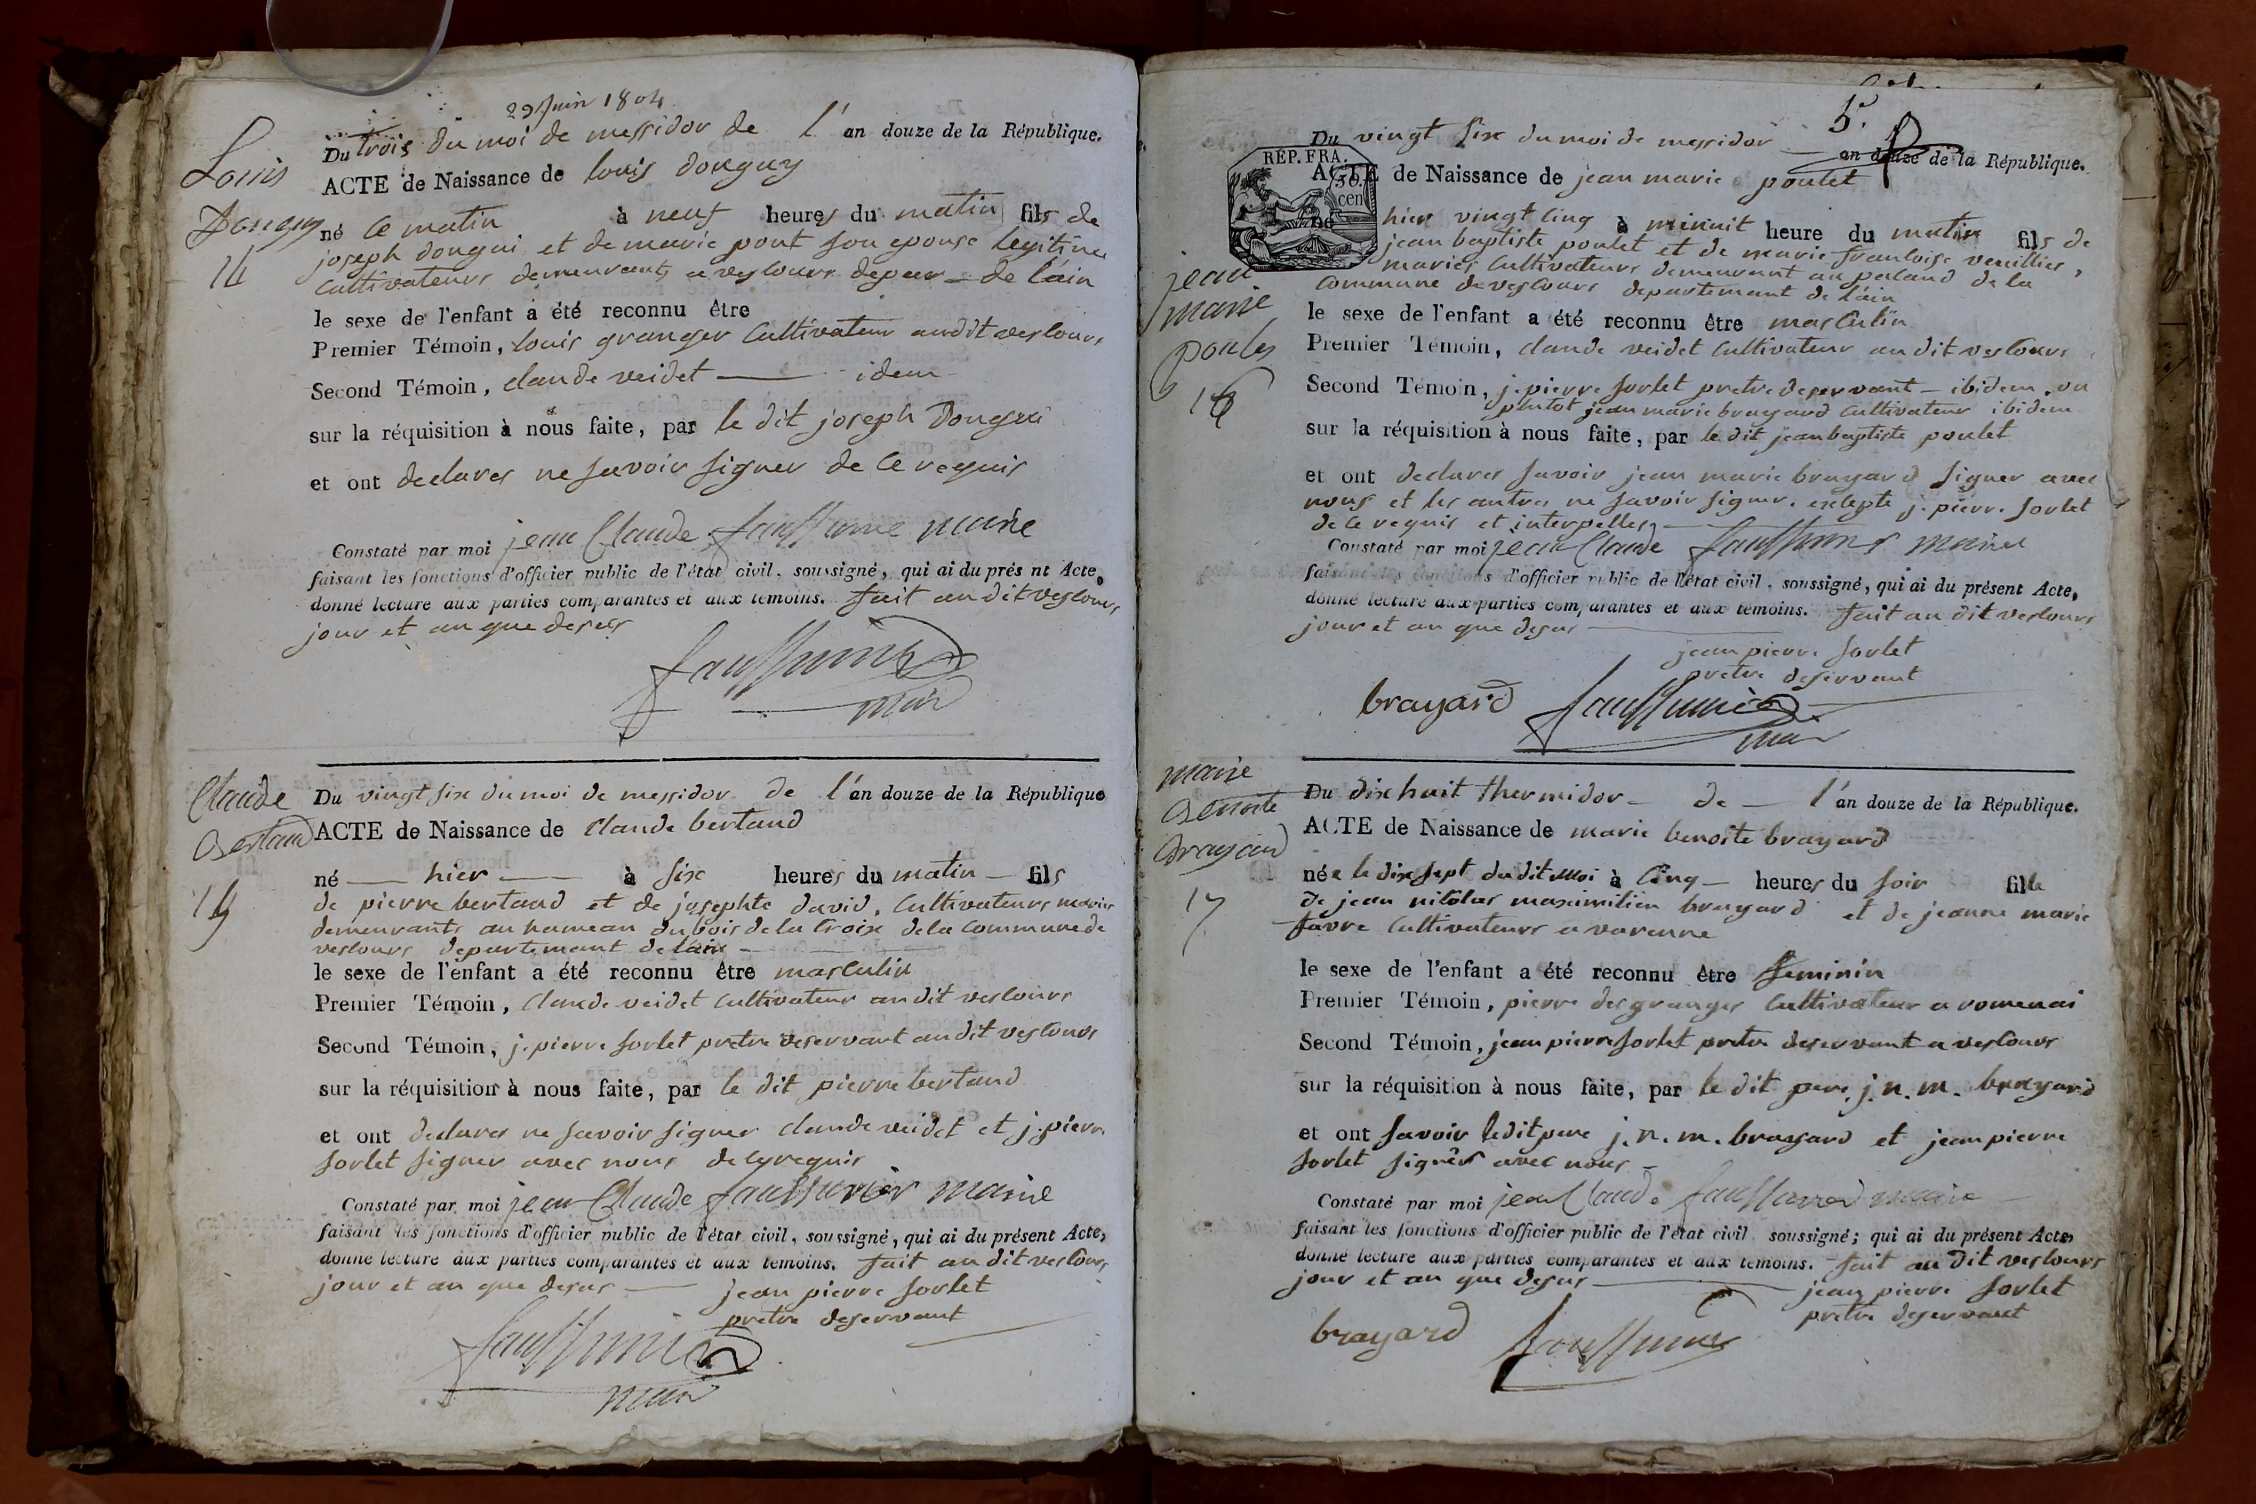 29 Juin 1804
Louis
Donguy
14
Du trois du moi de messidor de l'an douze de la République.
ACTE de Naissance de louis donguy
né ce matin à neuf heures du matin fils de
joseph dongui et de marie pont son epouse legitime
cultivateurs demeurants a vescours depar de l'ain
le sexe de l'enfant a été reconnu être
Premier Témoin, louis granger cultivateur audit vescours
Second Témoin, claude veidet idem
sur la réquisition à nous faite, par le dit joseph Dongui
et ont declares ne savoir signer de ce requis
Constaté par moi jean Claude maire
faisant les fonctions d'officier public de l'état civil, soussigné, qui ai du prés nt Acte,
donné lecture aux parties comparantes et aux témoins. fait au dit vescours
jour et an que desus
Claude
Bertaud
15
Du vingt six du moi de messidor de l'an douze de la République
ACTE de Naissance de claude bertaud
né hier à six heures du matin fils
de pierre bertaud et de josephte david, cultivateurs maries
demeurants au hameau du bois de la croix de la commune de
vescours departement de lain
le sexe de l'enfant a été reconnu être masculin
Premier Témoin, claude veidet cultivateur au dit vescours
Second Témoin, j. pierre sorlet pretre deservant au dit vescours
sur la réquisition à nous faite, par le dit pierre bertaud
et ont declares ne savoir signer claude veidet et j. pierre
sorlet signer avec nous de ce requis
Constaté par moi jean Claude maire
faisant les fonctions d'officier public de l'état civil, soussigné, qui ai du présent Acte,
donné lecture aux parties comparantes et aux témoins. fait au dit vescours
jour et an que desus
jean pierre sorlet
pretre deservant
5e
RÉP. FRA.
50
cen
jean
marie
poulet
16
Du vingt six du moi de messidor an douze de la République.
ACTE de Naissance de jean marie poulet
né hier vingt cinq à minuit heure du matin fils de
jean baptiste poulet et de marie francoise
maries cultivateurs demeurant au paland de la
commune de vescours departement de l'ain
le sexe de l'enfant a été reconnu être masculin
Premier Témoin, claude veidet cultivateur au dit vescours
Second Témoin, j. pierre sorlet pretre deservant ibidem ou
plutot jean marie brayard cultivateur ibidem
sur la réquisition à nous faite, par le dit jean baptiste poulet
et ont declares savoir jean marie brayard signer avec
nous et les autres ne savoir signer. excepte j. pierre sorlet
de ce requis et interpelles
Constaté par moi jean Claude maire
faisant les fonctions d'officier public de l'état civil, soussigné, qui ai du présent Acte,
donné lecture aux parties comparantes et aux témoins. fait au dit vescours
jour et an que desus
jean pierre sorlet
pretre deservant
brayard
marie
Benoite
Brayard
17
Du dix huit thermidor de l'an douze de la République.
ACTE de Naissance de marie benoite brayard
née le dix sept du dit moi à cinq heures du soir fille
de jean nicolas maximilien brayard et de jeanne marie
favre cultivateurs a varenne
le sexe de l'enfant a été reconnu être feminin
Premier Témoin, pierre desgranges cultivateur a romenai
Second Témoin, jean pierre sorlet pretre deservant a vescours
sur la réquisition à nous faite, par le dit pere j. n. m. brayard
et ont savoir ledit pere j. n. m. brayard et jean pierre
sorlet signer avec nous
Constaté par moi jean Claude maire
faisant les fonctions d'officier public de l'état civil soussigné; qui ai du présent Acte,
donné lecture aux parties comparantes et aux témoins. fait au dit vescours
jour et an que desus
jean pierre sorlet
pretre deservant
brayard